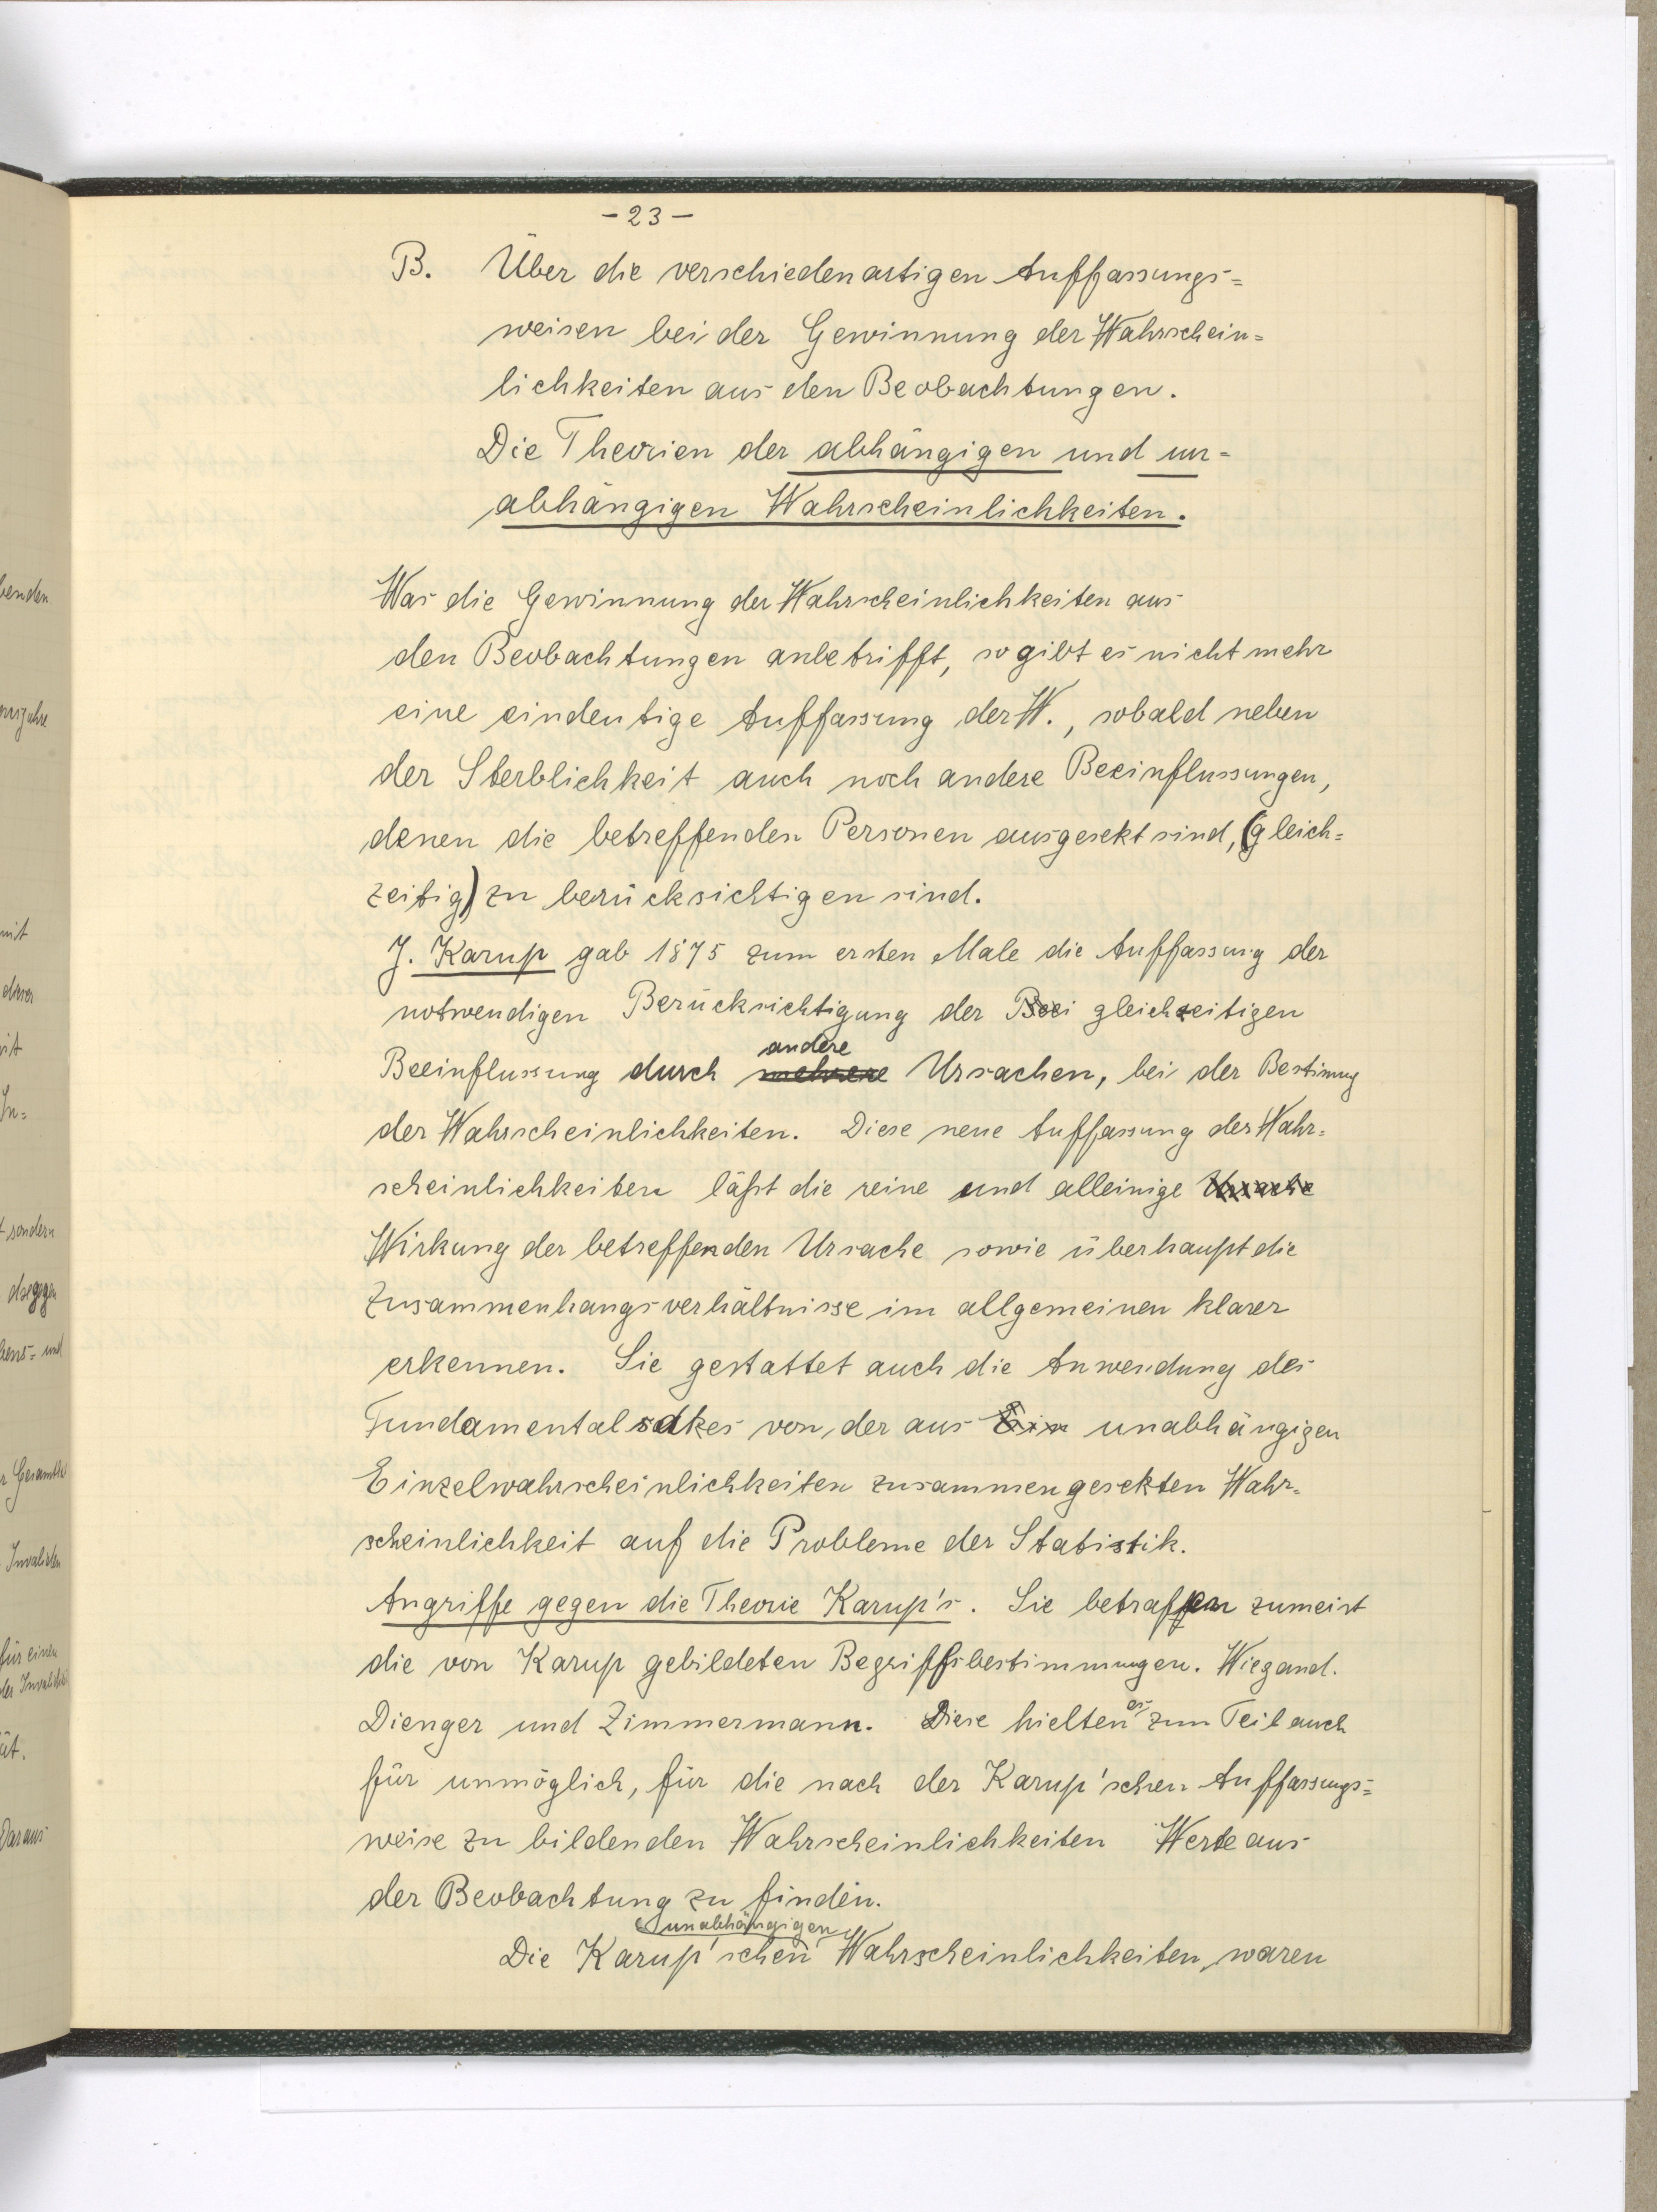 - 23 -
B. Über die verschiedenartigen Auffassungs=
weisen bei der Gewinnung der Wahrschein=
lichkeiten aus den Beobachtungen.
Die Theorien der abhängigen und un=
abhängigen Wahrscheinlichkeiten.
Was die Gewinnung der Wahrscheinlichkeiten aus
den Beobachtungen anbetrifft, so gibt es nicht mehr
eine eindeutige Auffassung der W., sobald neben
der Sterblichkeit auch noch andere Beeinflussungen,
denen die betreffenden Personen ausgesetzt sind, (gleich=
zeitig) zu berücksichtigen sind.
J. Karup gab 1875 zum ersten Male die Auffassung der
notwendigen Berücksichtigung der Beei gleichzeitigen
andere
Beeinflussung durch mehrere Ursachen, bei der Bestimung
der Wahrscheinlichkeiten. Diese neue Auffassung der Wahr=
scheinlichkeiten läßt die reine und alleinige Ursache
Wirkung der betreffenden Ursache sowie überhaupt die
Zusammenhangsverhältnisse im allgemeinen klarer
erkennen. Sie gestattet auch die Anwendung des
Fundamentalsatzes von der aus Ein unabhängigen
Einzelwahrscheinlichkeiten zusammengesetzten Wahr=
scheinlichkeit auf die Probleme der Statistik.
Angriffe gegen die Theorie Karup's. Sie betraffen zumeist
die von Karup gebildeten Begriffsbestimmungen. Wiegand.
Dienger und Zimmermann. Diese hielten es zum Teil auch
für unmöglich, für die nach der Karup'schen Auffassungs=
weise zu bildenden Wahrscheinlichkeiten Werte aus
der Beobachtung zu finden.
unabhängigen
Die Karup'schen Wahrscheinlichkeiten waren
benden
mit
dieser
In=
sondern
dagegen
bens= und
Invaliden
für einen
der Invalidität
Daraus